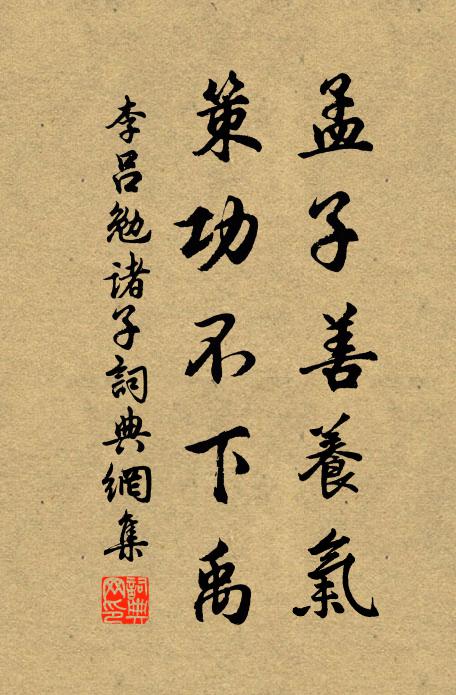 孟子善養氣
策功不下禹
李呂勉諸子詞典網集
詞典
网印